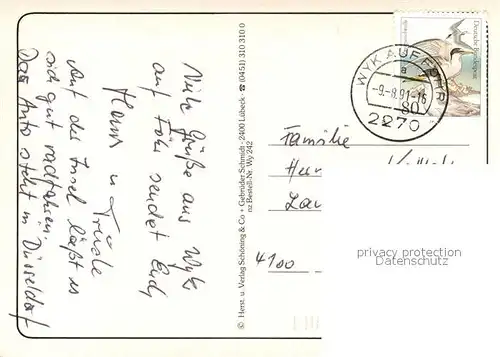 Viele Grüße aus Wyk
auf Föhr sendet Euch
Hans u. Trude
Auf der Insel läßt es
sich gut radfahren.
Das Auto steht in Düsseldorf
© Herst. u. Verlag Schöning & Co + Gebrüder Schmidt · 2400 Lübeck · ☎ (0451) 310 310 0
nz Bestell-Nr. Wy 242
Deutsche Bundespost
80
WYK AUF FÖHR
a
-9.-8.91-16
2270
Familie
4100
privacy protection
Datenschutz